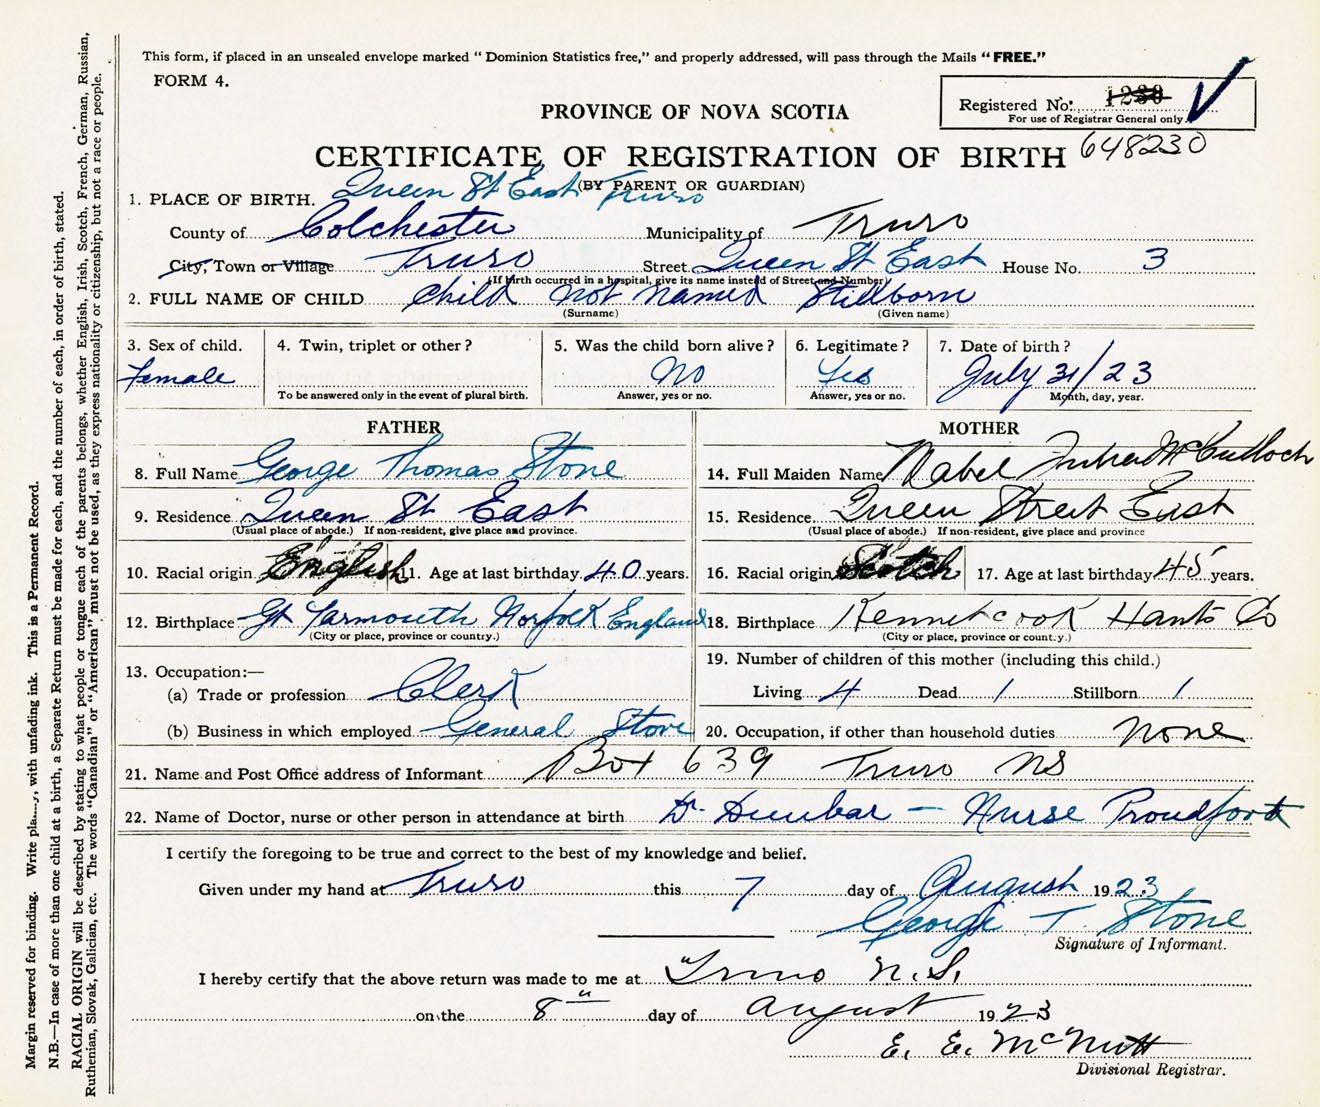 This form, if placed in an unsealed envelope marked "Dominion Statistics free," and properly addressed, will pass through the Mails "FREE."
FORM 4.
Registered No. 1230
For use of Registrar General only.
648230
PROVINCE OF NOVA SCOTIA
CERTIFICATE OF REGISTRATION OF BIRTH
(BY PARENT OR GUARDIAN)
1. PLACE OF BIRTH. Queen St East Truro
County of Colchester Municipality of Truro
City, Town or Village Truro Street Queen St East House No. 3
(If birth occurred in a hospital, give its name instead of Street and Number)
2. FULL NAME OF CHILD Child not named Stillborn
(Surname) (Given name)
3. Sex of child. 4. Twin, triplet or other? 5. Was the child born alive? 6. Legitimate? 7. Date of birth?
Female No Yes July 31/23
To be answered only in the event of plural birth. Answer, yes or no. Answer, yes or no. Month, day, year.
FATHER MOTHER
8. Full Name George Thomas Stone 14. Full Maiden Name Mabel McCulloch
9. Residence Queen St East 15. Residence Queen Street East
(Usual place of abode.) If non-resident, give place and province. (Usual place of abode.) If non-resident, give place and province
10. Racial origin English 11. Age at last birthday 40 years. 16. Racial origin Scotch 17. Age at last birthday 45 years.
12. Birthplace Gt Yarmouth Norfolk England 18. Birthplace Kennetcook Hants Co
(City or place, province or country.) (City or place, province or count.y.)
13. Occupation:— 19. Number of children of this mother (including this child.)
(a) Trade or profession Clerk Living 4 Dead 1 Stillborn 1
(b) Business in which employed General Store 20. Occupation, if other than household duties none
21. Name and Post Office address of Informant Box 639 Truro NS
22. Name of Doctor, nurse or other person in attendance at birth Dr. Dunbar — Nurse Proudfoot
I certify the foregoing to be true and correct to the best of my knowledge and belief.
Given under my hand at Truro this 7 day of August 1923
George T. Stone
Signature of Informant.
I hereby certify that the above return was made to me at Truro N.S.
on the 8" day of August 1923
E. E. McNutt
Divisional Registrar.
Margin reserved for binding. Write pla....,, with unfading ink. This is a Permanent Record.
N.B.—In case of more than one child at a birth, a Separate Return must be made for each, and the number of each, in order of birth, stated.
RACIAL ORIGIN will be described by stating to what people or tongue each of the parents belongs, whether English, Irish, Scotch, French, German, Russian,
Ruthenian, Slovak, Galician, etc. The words "Canadian" or "American" must not be used, as they express nationality or citizenship, but not a race or people.